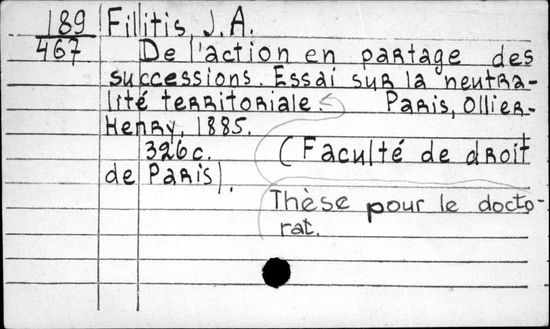 189 Fillitis, J. A.
467 De l'action en partage des
successions. Essai sur la neutra-
lité territoriale. Paris, Ollier-
Henry, 1885.
326 c. (Faculté de droit
de Paris).
Thèse pour le docto-
rat.